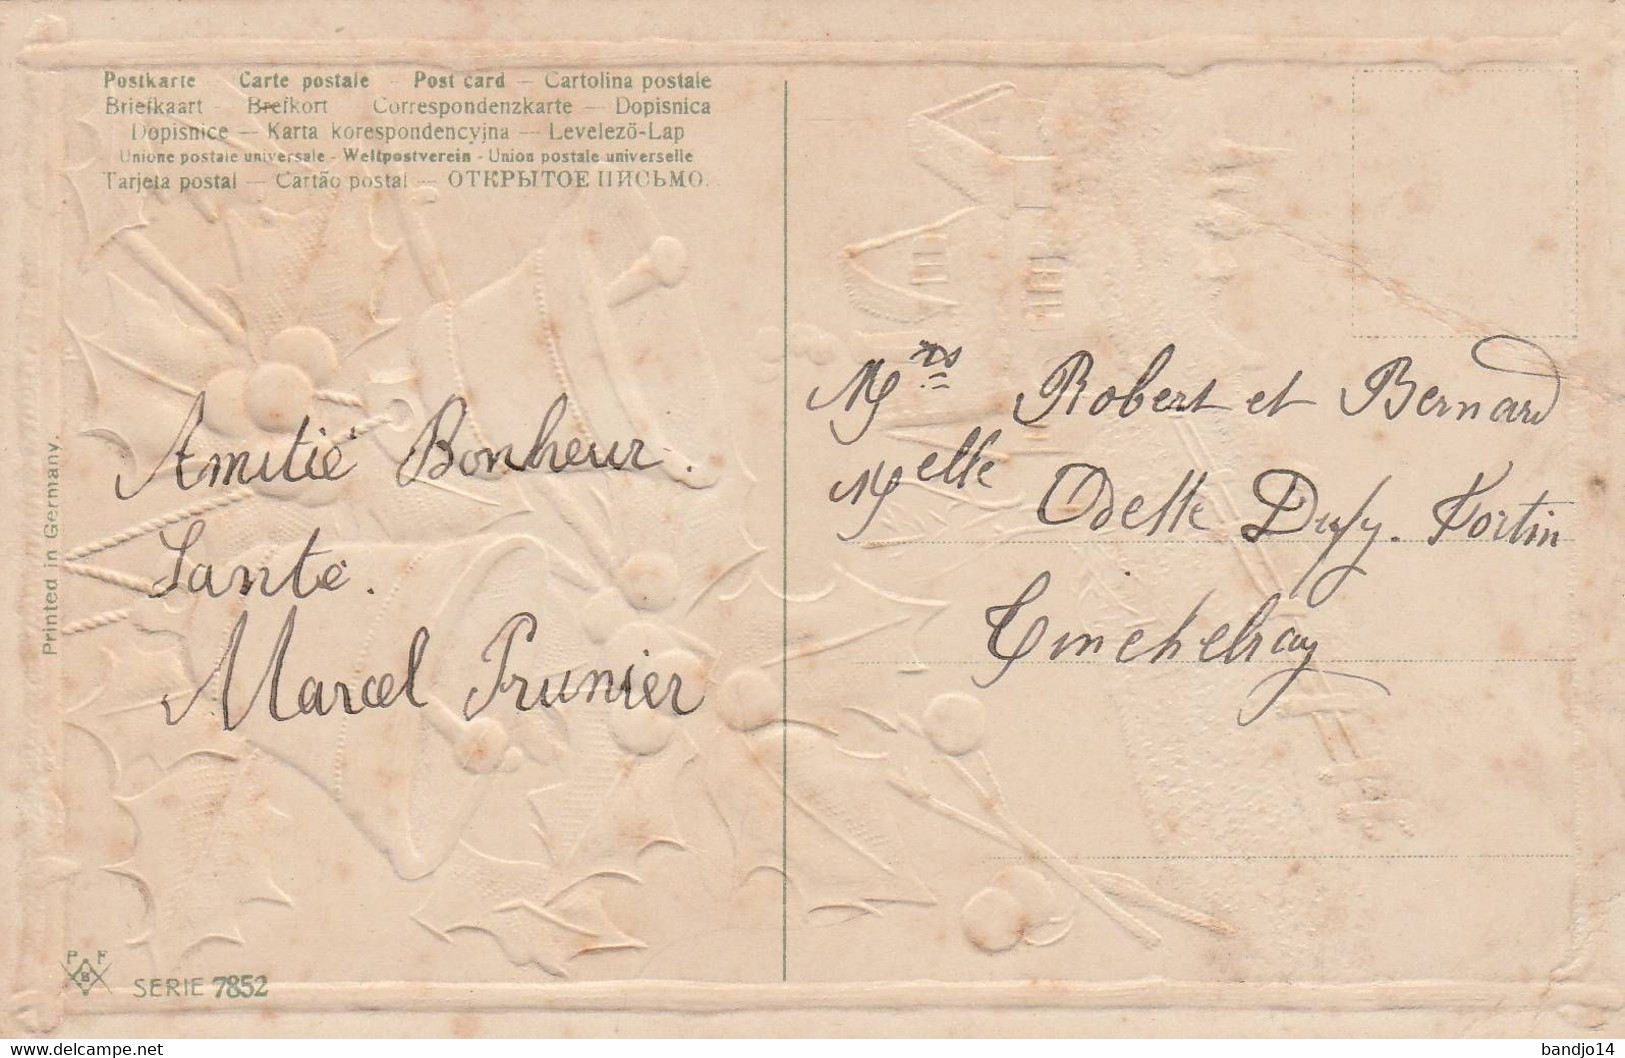 Postkarte – Carte postale – Post card – Cartolina postale
Briefkaart – Brefkort – Correspondenzkarte – Dopisnica
Dopisnice – Karta korespondencyjna – Levelezö-Lap
Unione postale universale - Weltpostverein - Union postale universelle
Tarjeta postal – Cartão postal – ОТКРЫТОЕ ПИСЬМО.
Printed in Germany.
Amitié Bonheur.
Santé.
Marcel Prunier
P F
B
SERIE 7852
Mrs Robert et Bernard
Melle Odette Dufy. Fortin
Tinchebray
delcampe.net
bandjo14